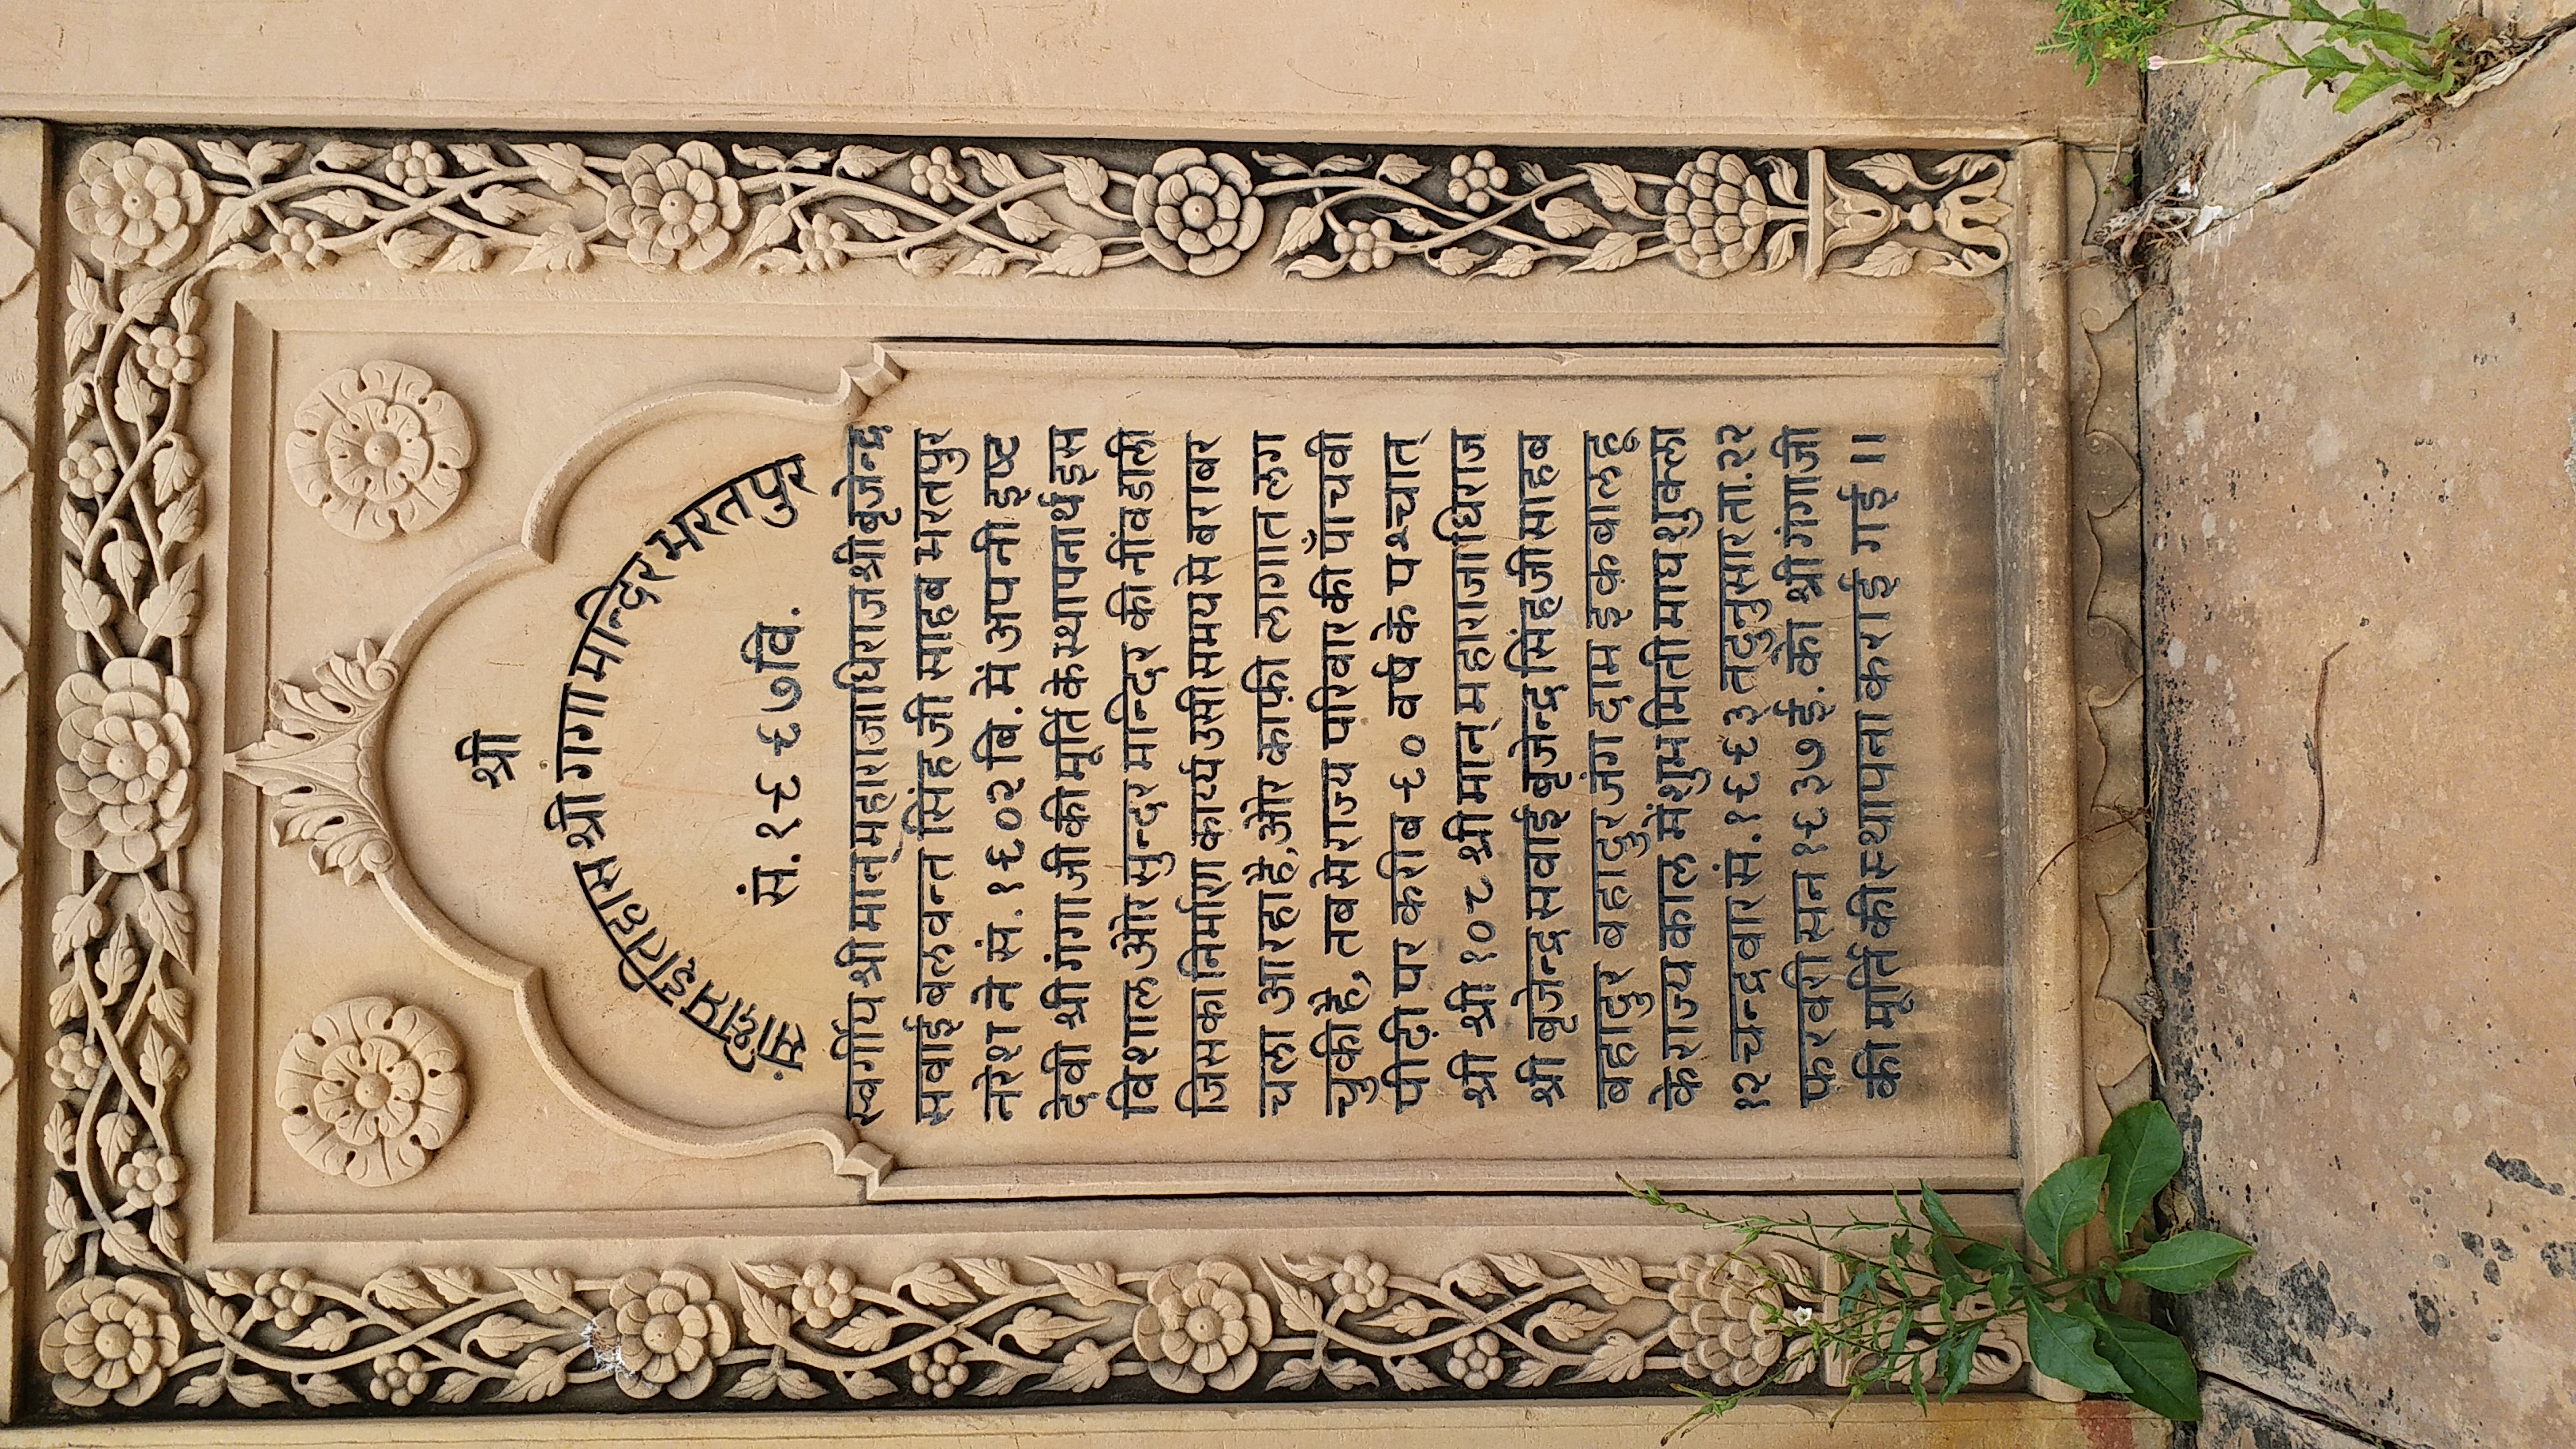 श्री
संक्षिप्त इतिहास श्री गंगा मन्दिर भरतपुर
सं. १९९७ वि.
स्वर्गीय श्रीमान् महाराजाधिराज श्री बृजेन्द्र
सवाई बलवन्त सिंह जी साहब भरतपुर
नरेश ने सं. १९०२ बि. में अपनी इष्ट
देवी श्री गंगा जी की मूर्ति के स्थापनार्थ इस
विशाल ओर सुन्दर मान्दिर की नींव डाली
जिसका निर्माण कार्य्य उसी समय से बराबर
चला आ रहा है, ओर काफ़ी लागात लग
चुकी है, तब से राज्य परिवार की पाँचवी
पीढ़ी पर करीब ९० वर्ष के पश्चात्
श्री श्री १०८ श्रीमान् महाराजाधिराज
श्री बृजेन्द्र सवाई बृजेन्द्र सिंह जी साहब
बहादुर बहादुर जंग दाम इक़बालहू
के राज्य काल में शुभ मिती माघ शुक्ला
१२ चन्द्रवार सं. १९९३ तदुनुसार ता. २२
फ़रवरी सन १९३७ ई. को श्री गंगा जी
की मूर्ति की स्थापना कराई गई ।।